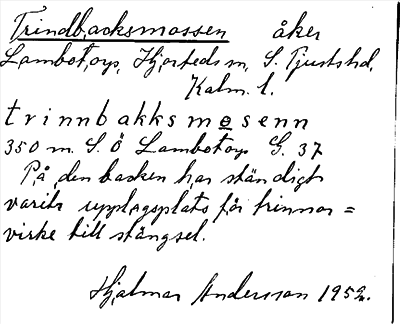 Trindbacksmossen åker
Lambotorp, Hjorteds sn, S. Tjusts hd,
Kalm. l.
trinnbakksmosenn
350 m. S. Ö Lambotorp G. 37
På den backen har ständigt
varit upplagsplats för trinnor =
virke till stängsel.
Hjalmar Andersson 1952.